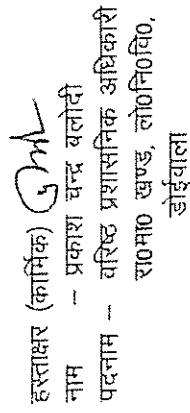 हस्ताक्षर (कार्मिक)
नाम – प्रकाश चन्द्र बलोदी
पदनाम – वरिष्ठ प्रशासनिक अधिकारी
रा०मा० खण्ड, लो०नि०वि०,
डोईवाला